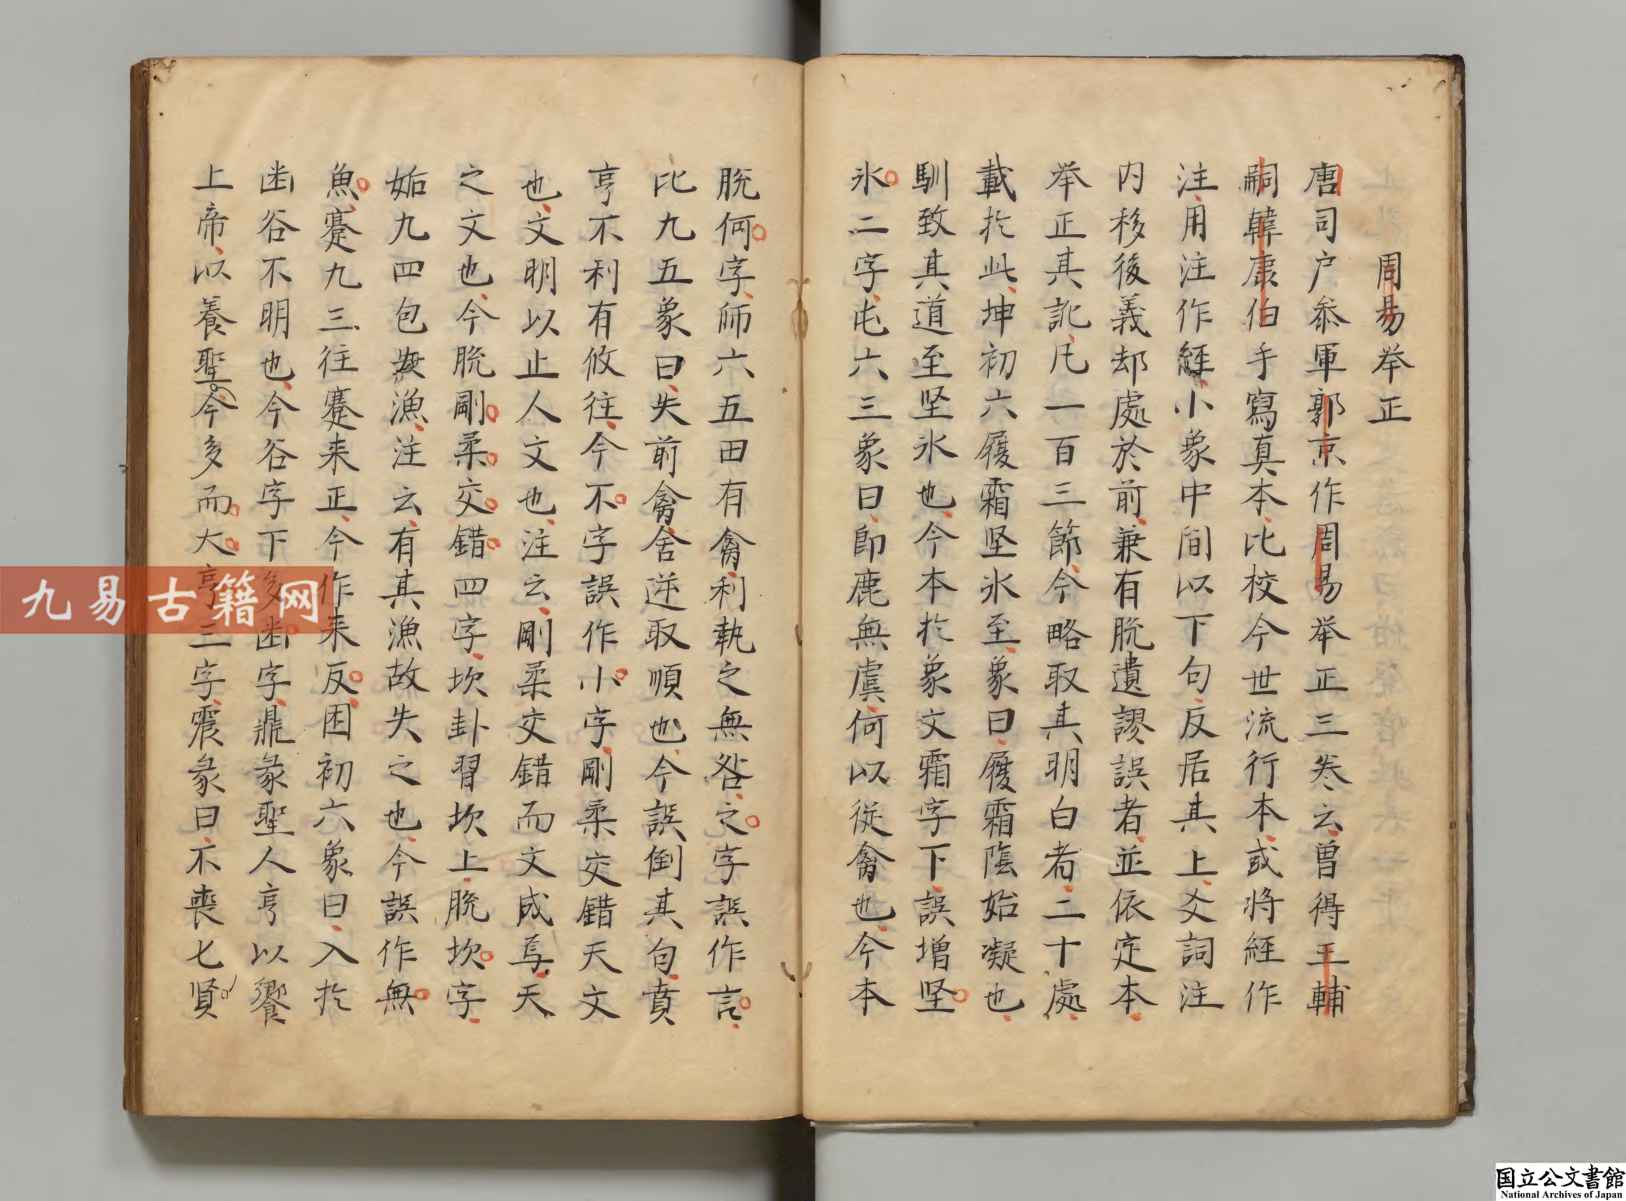 周易举正
唐司户叅軍郭京作周易举正三卷云曽得王輔
嗣韓康伯手寫真本比校今世流行本或将経作
注用注作経小象中間以下句反居其上爻詞注
内移後義却處於前兼有脱遺謬誤者並依定本
举正其訛凡一百三節今略取其明白者二十處
載扵此坤初六履霜坚氷至象曰履霜陰始凝也
馴致其道至坚氷也今本扵象文霜字下誤增坚
氷二字屯六三象曰即鹿無虞何以従禽也今本
脱何字師六五田有禽利執之無咎之字誤作言
比九五象曰失前禽舍逆取順也今誤倒其句賁
亨不利有攸往今不字誤作小字剛柔交錯天文
也文明以止人文也注云剛柔交錯而文成焉天
之文也今脱剛柔交錯四字坎卦習坎上脱坎字
姤九四包無漁注云有其漁故失之也今誤作無
魚蹇九三往蹇来正今作来反困初六象曰入扵
幽谷不明也今谷字下多幽字鼎彖聖人亨以饗
上帝以養聖今多而大亨三字震彖曰不喪匕賢
九易古籍网
国立公文書館
National Archives of Japan